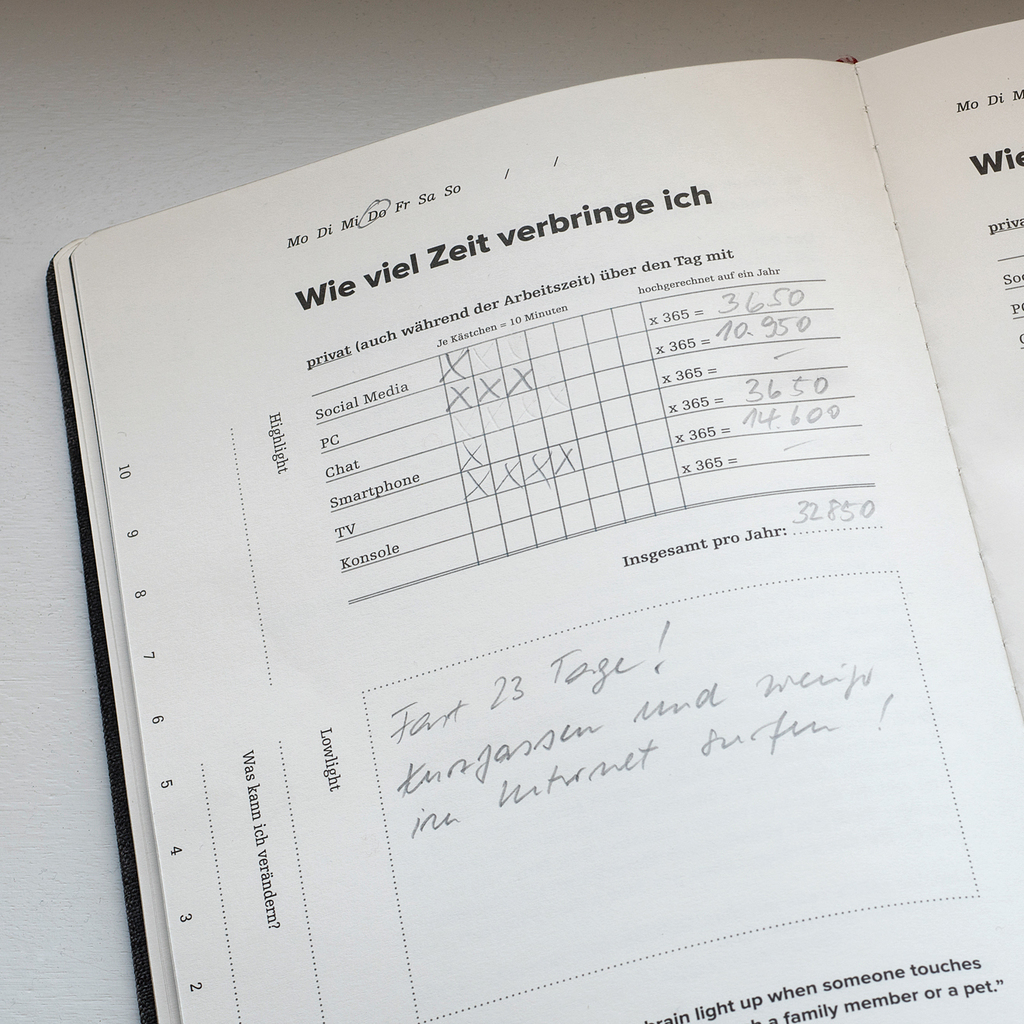 Mo Di Mi Do Fr Sa So / /
Wie viel Zeit verbringe ich
privat (auch während der Arbeitszeit) über den Tag mit
Je Kästchen = 10 Minuten hochgerechnet auf ein Jahr
Social Media X x 365 = 3650
PC X X X x 365 = 10.950
Chat x 365 = –
Smartphone X x 365 = 3650
TV X X X X x 365 = 14.600
Konsole x 365 = –
Insgesamt pro Jahr: 32850
Fast 23 Tage!
kurzfassen und weniger
im Internet surfen!
brain light up when someone touches
a family member or a pet.”
Highlight
Lowlight
Was kann ich verändern?
10
9
8
7
6
5
4
3
2
Mo Di M
Wie
priva
Soc
PC